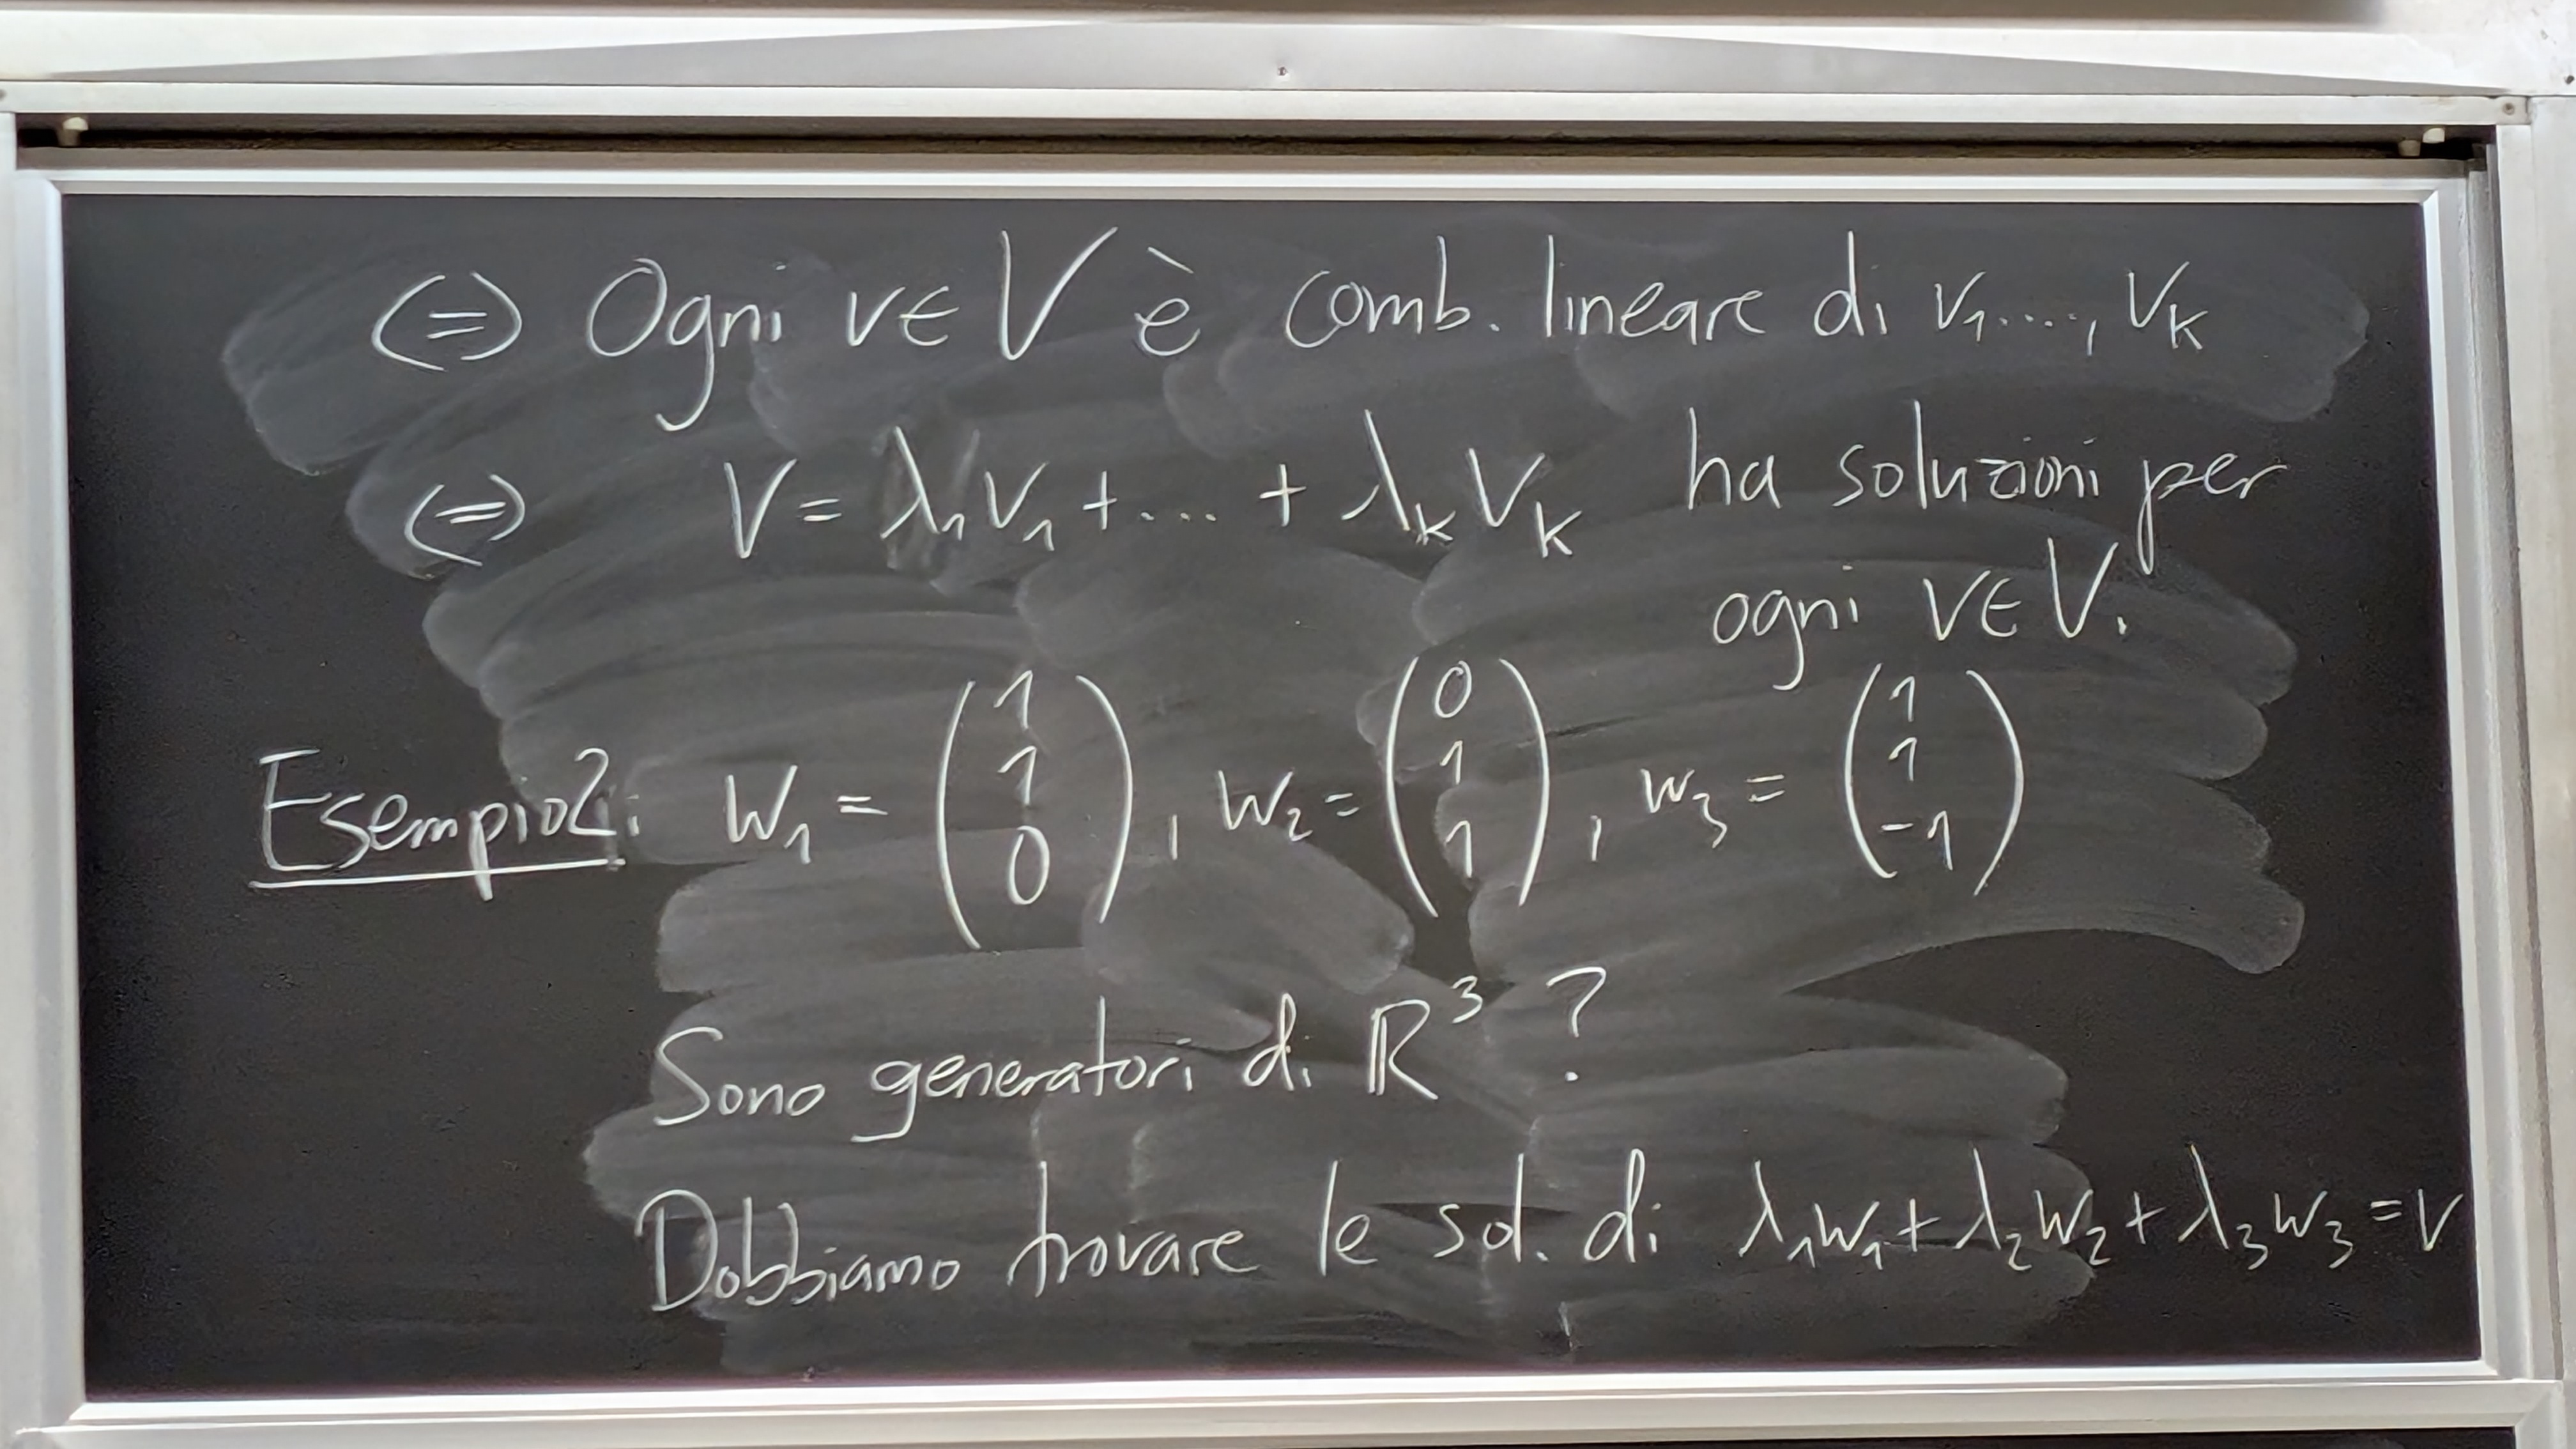 ⇔ Ogni v ∈ V è comb. lineare di v₁...., vₖ
⇔ v = λ₁v₁ + .... + λₖvₖ ha soluzioni per
ogni v ∈ V.
Esempio2: w₁ = (1 1 0), w₂ = (0 1 1), w₃ = (1 1 -1)
Sono generatori di ℝ³ ?
Dobbiamo trovare le sol. di λ₁w₁ + λ₂w₂ + λ₃w₃ = v